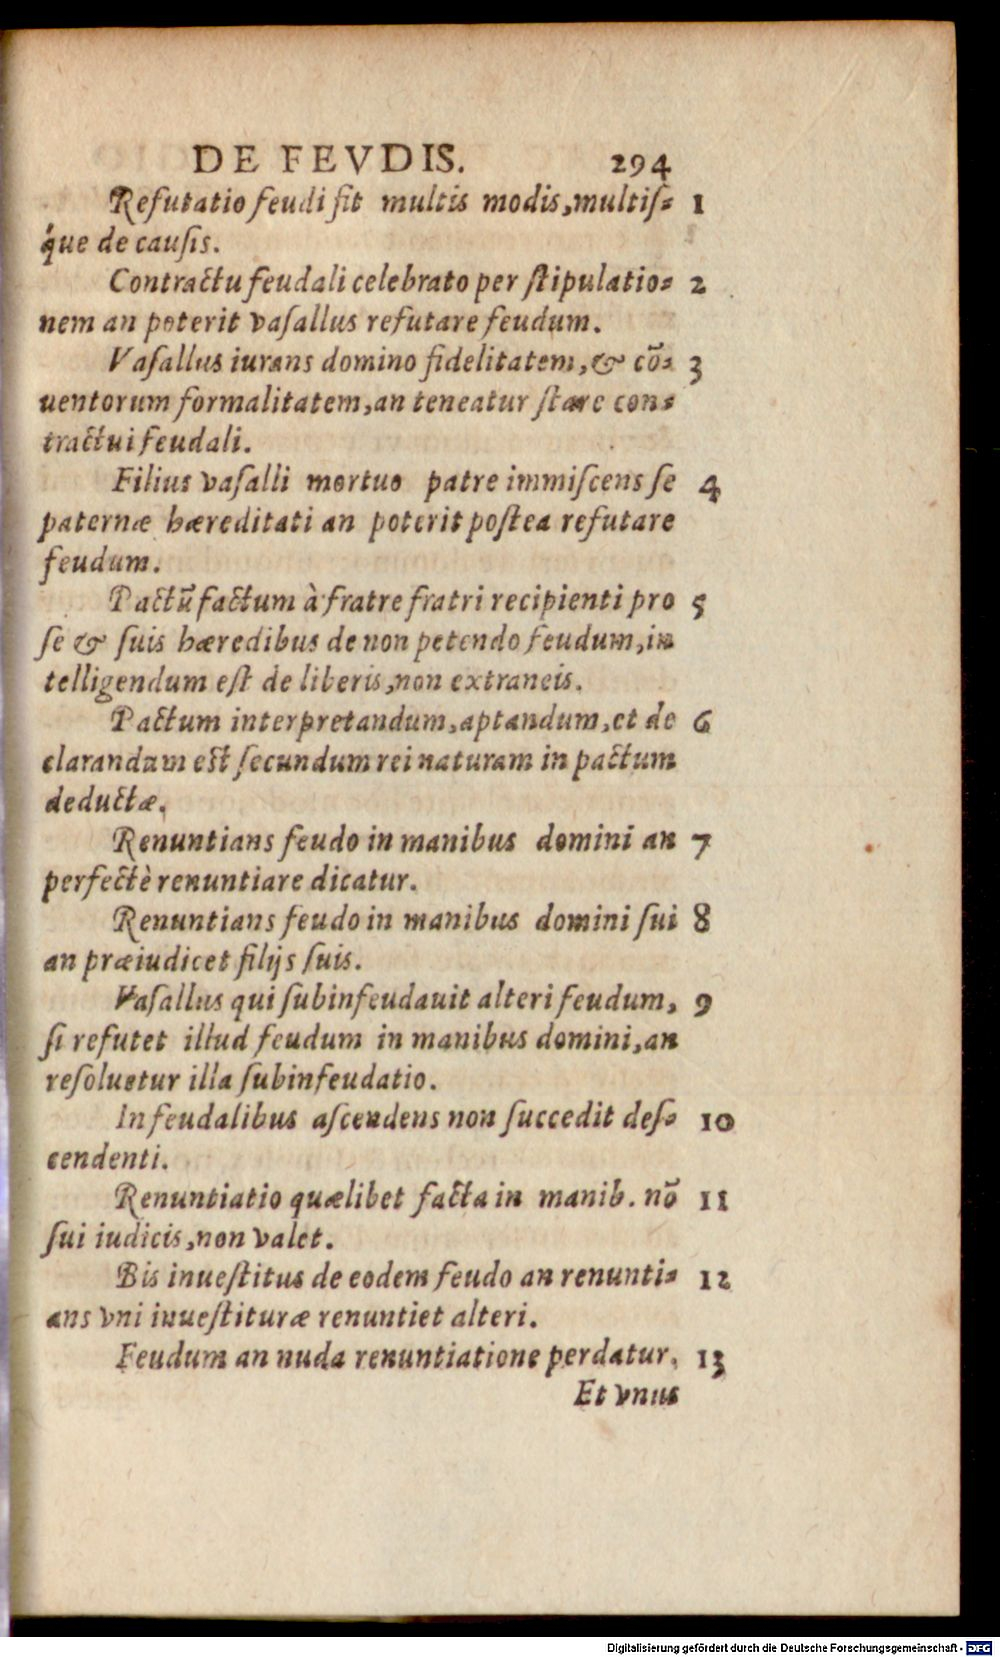 DE FEVDIS. 294
Refutatio feudi fit multis modis, multiſ= 1
q́ue de cauſis.
Contractu feudali celebrato per ſtipulatio= 2
nem an poterit vaſallus refutare feudum.
Vaſallus iurans domino fidelitatem, & cō= 3
uentorum formalitatem, an teneatur ſtare con=
tractui feudali.
Filius vaſalli mortuo patre immiſcens ſe 4
paternæ hæreditati an poterit poſtea refutare
feudum.
Pactū factum à fratre fratri recipienti pro 5
ſe & ſuis hæredibus de non petendo feudum, in
telligendum eſt de liberis, non extraneis.
Pactum interpretandum, aptandum, et de 6
clarandum eſt ſecundum rei naturam in pactum
deductæ.
Renuntians feudo in manibus domini an 7
perfectè renuntiare dicatur.
Renuntians feudo in manibus domini ſui 8
an præiudicet filijs ſuis.
Vaſallus qui ſubinfeudauit alteri feudum, 9
ſi refutet illud feudum in manibus domini, an
reſoluetur illa ſubinfeudatio.
In feudalibus aſcendens non ſuccedit deſ= 10
cendenti.
Renuntiatio quælibet facta in manib. nō 11
ſui iudicis, non valet.
Bis inueſtitus de eodem feudo an renunti= 12
ans vni inueſtituræ renuntiet alteri.
Feudum an nuda renuntiatione perdatur. 13
Et vnus
Digitalisierung gefördert durch die Deutsche Forschungsgemeinschaft - DFG